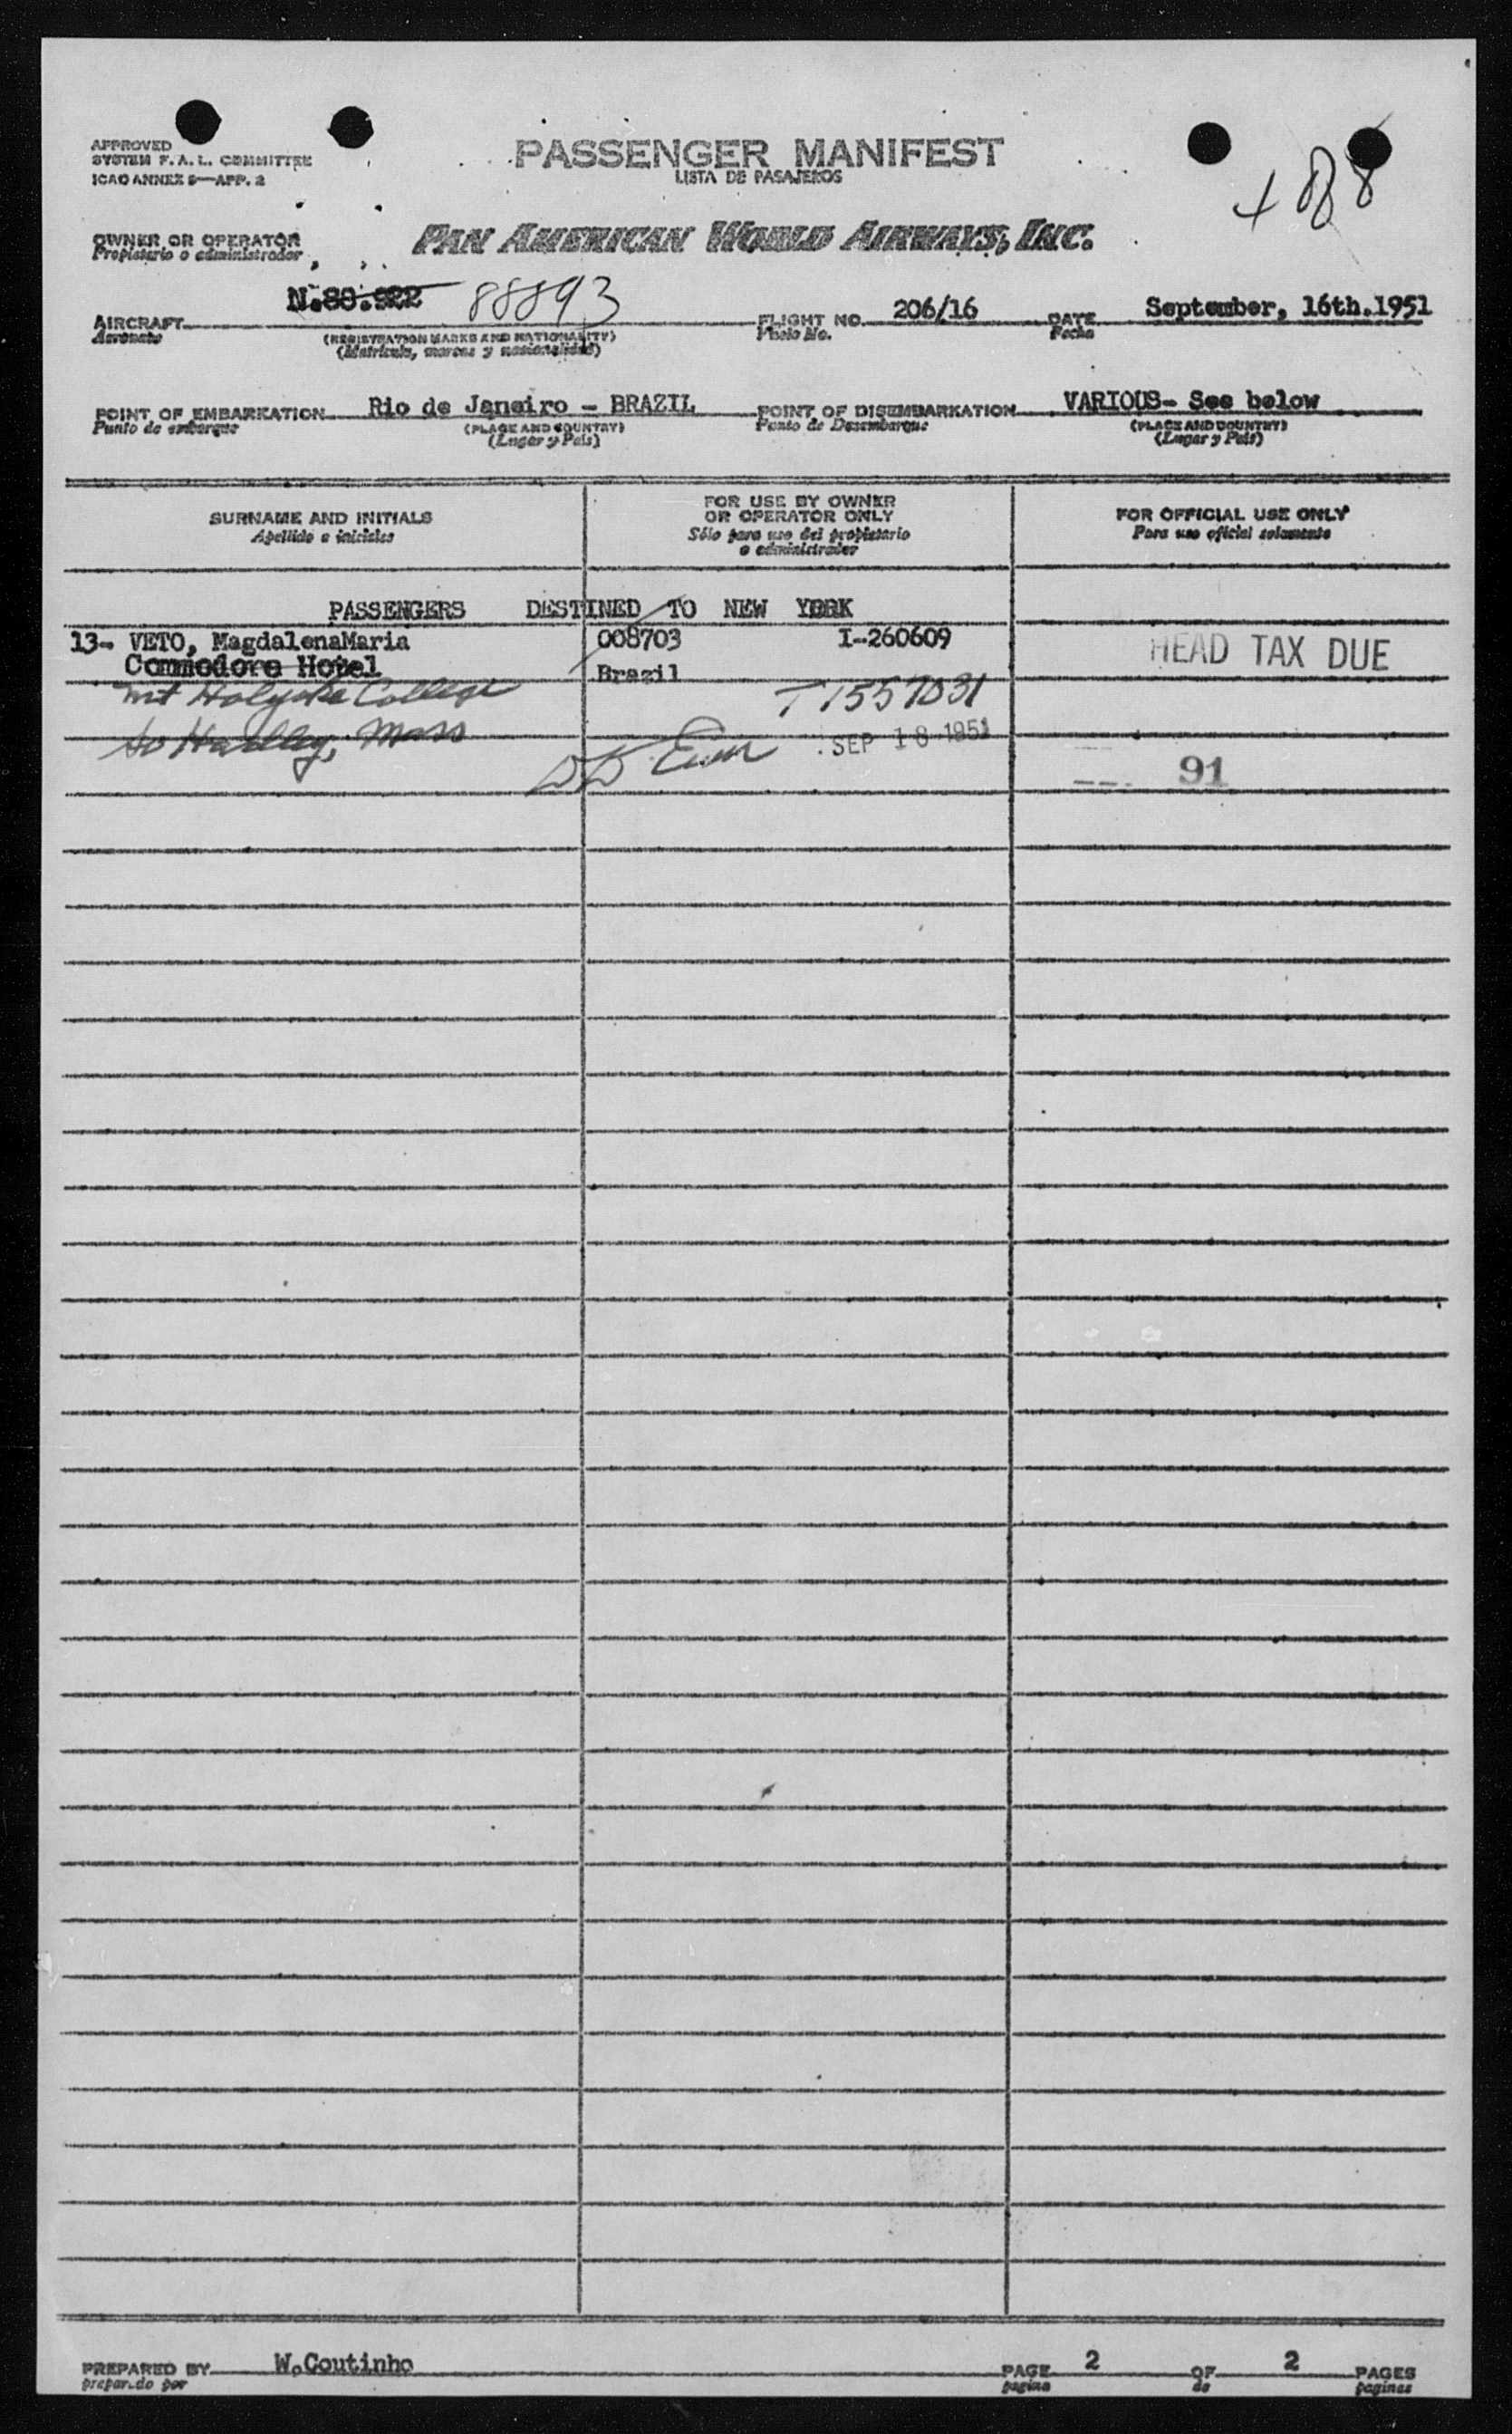 APPROVED
SYSTEM F. A. L. COMMITTEE
ICAO ANNEX 9—APP. 2
PASSENGER MANIFEST
LISTA DE PASAJEROS
+ 88
OWNER OR OPERATOR
Propietario o administrador
PAN AMERICAN WORLD AIRWAYS, INC.
AIRCRAFT N.88.922 88893 FLIGHT NO. 206/16 DATE September, 16th.1951
Aeronave (REGISTRATION MARKS AND NATIONALITY) Vuelo No. Fecha
(Matrícula, marcas y nacionalidad)
POINT OF EMBARKATION Rio de Janeiro - BRAZIL POINT OF DISEMBARKATION VARIOUS- See below
Punto de embarque (PLACE AND COUNTRY) Punto de Desembarque (PLACE AND COUNTRY)
(Lugar y País) (Lugar y País)
SURNAME AND INITIALS
Apellido e iniciales
FOR USE BY OWNER
OR OPERATOR ONLY
Sólo para uso del propietario
o administrador
FOR OFFICIAL USE ONLY
Para uso oficial solamente
PASSENGERS DESTINED TO NEW YORK
13- VETO, MagdalenaMaria 008703 I-260609 HEAD TAX DUE
Commodore Hotel Brazil
Mt Holyoke College T1557031
So Hadley, Mass SEP 18 1951
91
PREPARED BY W.Coutinho PAGE 2 OF 2 PAGES
preparado por pagina de paginas